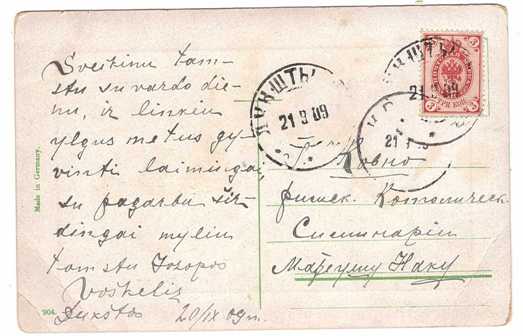 Sveikinu tam-
stu su vardo die-
nu, ir linkiu
ylgus metus gy-
venti laimingai
su pagarbu šir-
dingai myliu
tamstu Jozopos
Voškelis
Dukštos 20/IX 09 m.
Made in Germany.
904.
ДУКШТЫ
21 9 09
ДУКШТЫ
21 9 09
21
3
3
3
г. Ковно
римск. Католическ.
Семинарія
Матеушу Наку